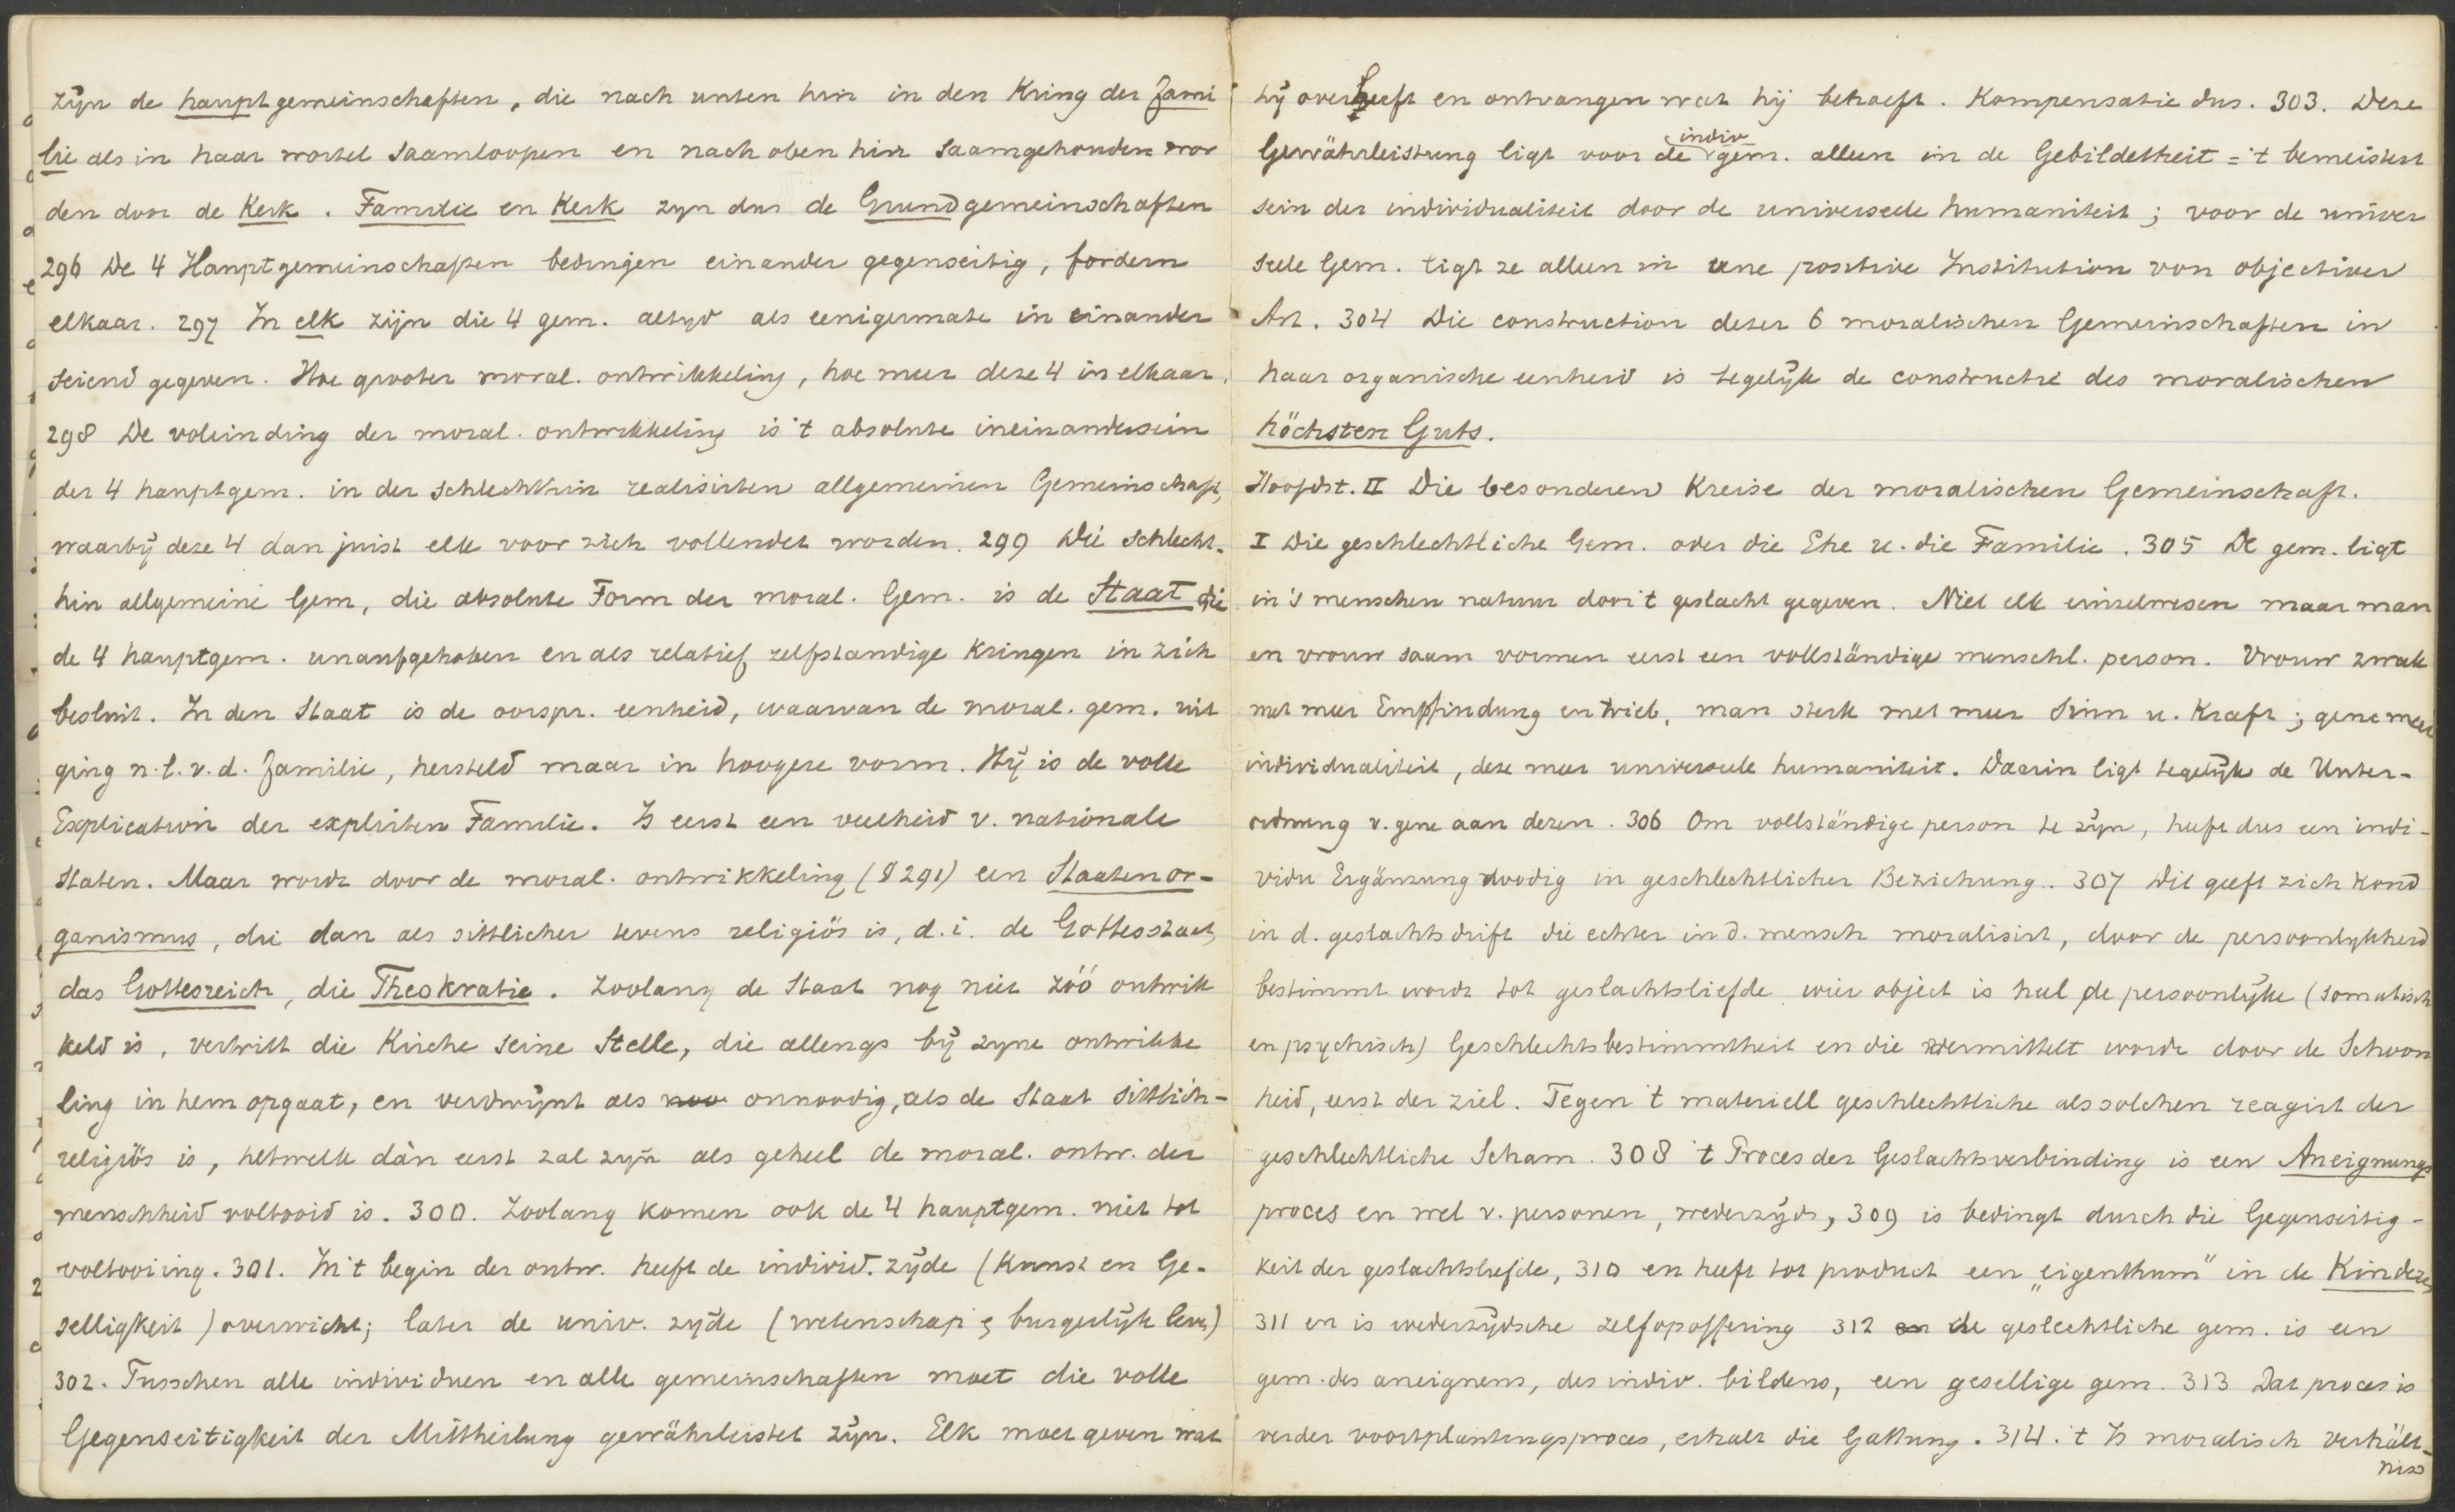 zijn de hauptgemeinschaften, die nach unten hin in den Kring der Fami
lie als in haar wortel saamloopen en nach oben hin saamgehouden wor
den door de Kerk. Familie en Kerk zyn dus de Grundgemeinschaften
296 De 4 Hauptgemeinschaften bedingen einander gegenseitig, fordern
elkaar. 297 In elk zijn die 4 gem. altyd als eenigermate in einander
seiend gegeven. Hoe grooter moral. ontwikkeling, hoe meer deze 4 in elkaar.
298 De voleinding der moral. ontwikkeling is 't absolute ineinandersein
der 4 hauptgem. in der schlechthin realisirten allgemeinen Gemeinschaft,
waarbÿ deze 4 dan juist elk voor zich vollendet worden. 299 Die schlecht-
hin allgemeine Gem, die absolute Form der moral. Gem. is de Staat die
de 4 hauptgem. unaufgehoben en als relatief zelfstandige Kringen in zich
besluit. In den Staat is de oorspr. eenheid, waarvan de moral. gem. uit
ging n.l. v. d. Familie, hersteld maar in hoogere vorm. Hÿ is de volle
Explication der expliciten Familie. Is eerst een veelheid v. nationale
Staten. Maar wordt door de moral. ontwikkeling (§ 291) een Staatenor-
ganismus, die dan als sittlicher tevens religiös is, d. i. de Gottesstaat,
das Gottesreich, die Theokratie. Zoolang de Staat nog niet zóó ontwik
keld is, vertritt die Kirche seine Stelle, die allengs bÿ zyne ontwikke
ling in hem opgaat, en verdwÿnt als onnoodig, als de Staat sittlich-
religiös is, hetwelk dàn eerst zal zyn als geheel de moral. ontw. der
menschheid voltooid is. 300. Zoolang komen ook de 4 hauptgem. niet tot
voltooiing. 301. In 't begin der ontw. heeft de individ. zÿde (Kunst en Ge-
selligkeit) overwicht; later de univ. zÿde (wetenschap & burgerlÿk leven)
302. Tusschen alle individuen en alle gemeinschaften moet die volle
Gegenseitigkeit der Mittheilung gewährleistet zÿn. Elk moet geven wat
hÿ over heeft en ontvangen wat hij behoeft. Kompensatie dus. 303. Deze
Gewährleistung ligt voor de indiv gem. alleen in de Gebildetheit = 't bemeistert
sein der individualiteit door de universeele humaniteit; voor de univer
seele Gem. ligt ze alleen in eene positive Institution von objectiver
Art. 304 Die construction dezer 6 moralischen Gemeinschaften in
haar organische eenheid is tegelÿk de constructie des moralischen
höchsten Guts.
Hoofdst. II Die besonderen Kreise der moralischen Gemeinschaft.
I Die geschlechtliche Gem. oder die Ehe u. die Familie. 305 De gem. ligt
in 's menschen natuur door 't geslacht gegeven. Niet elk einzelwesen maar man
en vrouw saam vormen eerst een vollständige menschl. person. Vrouw zwak
met meer Empfindung en trieb, man sterk met meer Sinn u. Kraft; gene meer
individualiteit, deze meer universeele humaniteit. Daarin ligt tegelÿk de Unter-
ordnung v. gene aan dezen. 306 Om vollständige person te zÿn, heeft dus een indi-
vidu Ergänzung noodig in geschlechtlicher Beziehung. 307 Dit geeft zich kond
in d. geslachtsdrift die echter in d. mensch moralisirt, door de persoonlykheid
bestimmt wordt tot geslachtsliefde wier object is heel de persoonlÿke (somatisch
en psychisch) Geschlechtsbestimmtheit en die vermittelt wordt door de Schoon
heid, eerst der ziel. Tegen 't materiell geschlechtliche als solchen reagirt der
geschlechtliche Scham. 308 't Proces der Geslachtsverbinding is een Aneignungs
proces en wel v. personen, wederzÿds, 309 is bedingt durch die Gegenseitig-
keit der geslachtsliefde, 310 en heeft tot product een „eigenthum" in de Kinderen,
311 en is wederzÿdsche zelfopoffering 312 de geslechtliche gem. is een
gem. des aneignens, des indiv. bildens, een gesellige gem. 313 Dat proces is
verder voortplantingsproces, erhält die Gattung. 314. 't Is moralisch verhält-
niss